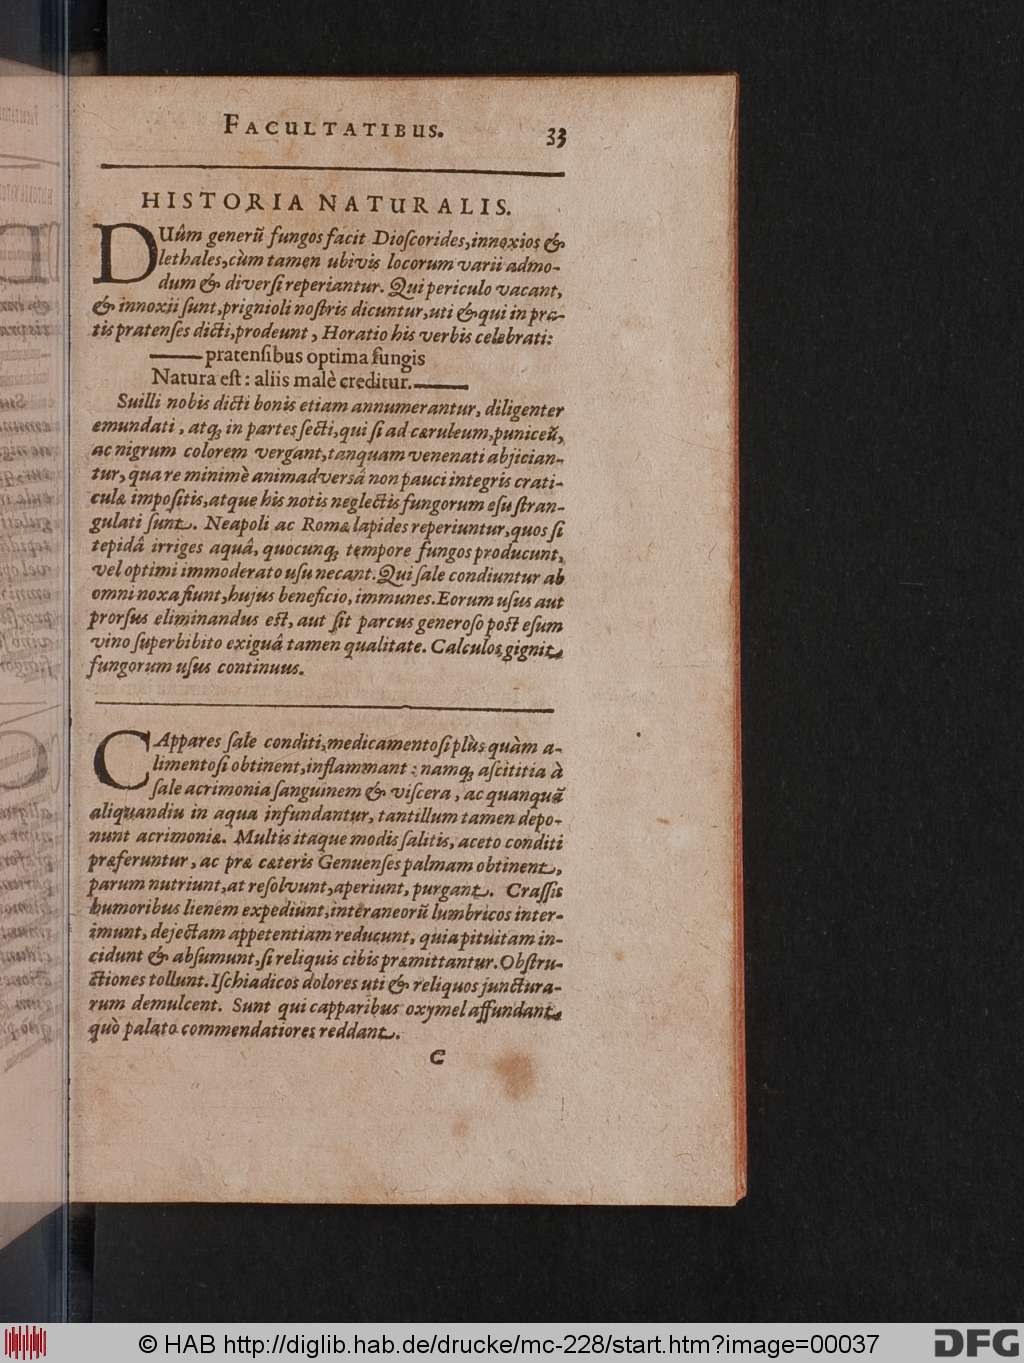 FACULTATIBUS. 33
HISTORIA NATURALIS.
DUûm generũ fungos facit Dioſcorides, innoxios &
lethales, cùm tamen ubivis locorum varii admo-
dum & diverſi reperiantur. Qui periculo vacant,
& innoxii ſunt, prignioli noſtris dicuntur, uti & qui in pra-
tis pratenſes dicti, prodeunt, Horatio his verbis celebrati:
—— pratenſibus optima fungis
Natura eſt: aliis malè creditur. ——
Suilli nobis dicti bonis etiam annumerantur, diligenter
emundati, atq; in partes ſecti, qui ſi ad cæruleum, puniceũ,
ac nigrum colorem vergant, tanquam venenati abjician-
tur, qua re minimè animadversâ non pauci integris crati-
culæ impoſitis, atque his notis neglectis fungorum eſu ſtran-
gulati ſunt. Neapoli ac Romæ lapides reperiuntur, quos ſi
tepidâ irriges aquâ, quocunq; tempore fungos producunt,
vel optimi immoderato uſu necant. Qui ſale condiuntur ab
omni noxa fiunt, hujus beneficio, immunes. Eorum uſus aut
prorſus eliminandus eſt, aut ſit parcus generoſo poſt eſum
vino ſuperbibito exiguâ tamen qualitate. Calculos gignit
fungorum uſus continuus.
CAppares ſale conditi, medicamentoſi plùs quàm a-
limentoſi obtinent, inflammant: namq; aſcititia à
ſale acrimonia ſanguinem & viſcera, ac quanquã
aliquandiu in aqua infundantur, tantillum tamen depo-
nunt acrimoniæ. Multis itaque modis ſalitis, aceto conditi
præferuntur, ac præ cæteris Genuenſes palmam obtinent,
parum nutriunt, at reſolvunt, aperiunt, purgant. Craſſis
humoribus lienem expediunt, interaneorũ lumbricos inter-
imunt, dejectam appetentiam reducunt, quia pituitam in-
cidunt & abſumunt, ſi reliquis cibis præmittantur. Obſtru-
ctiones tollunt. Iſchiadicos dolores uti & reliquos junctura-
rum demulcent. Sunt qui capparibus oxymel affundant
quò palato commendatiores reddant.
C
© HAB http://diglib.hab.de/drucke/mc-228/start.htm?image=00037
DFG